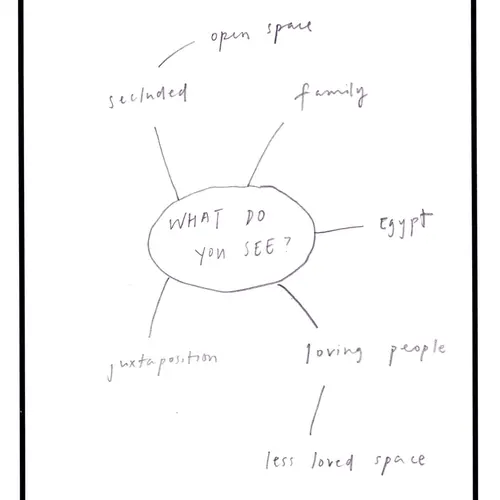 open space
secluded
family
WHAT DO
YOU SEE?
Egypt
juxtaposition
loving people
less loved space